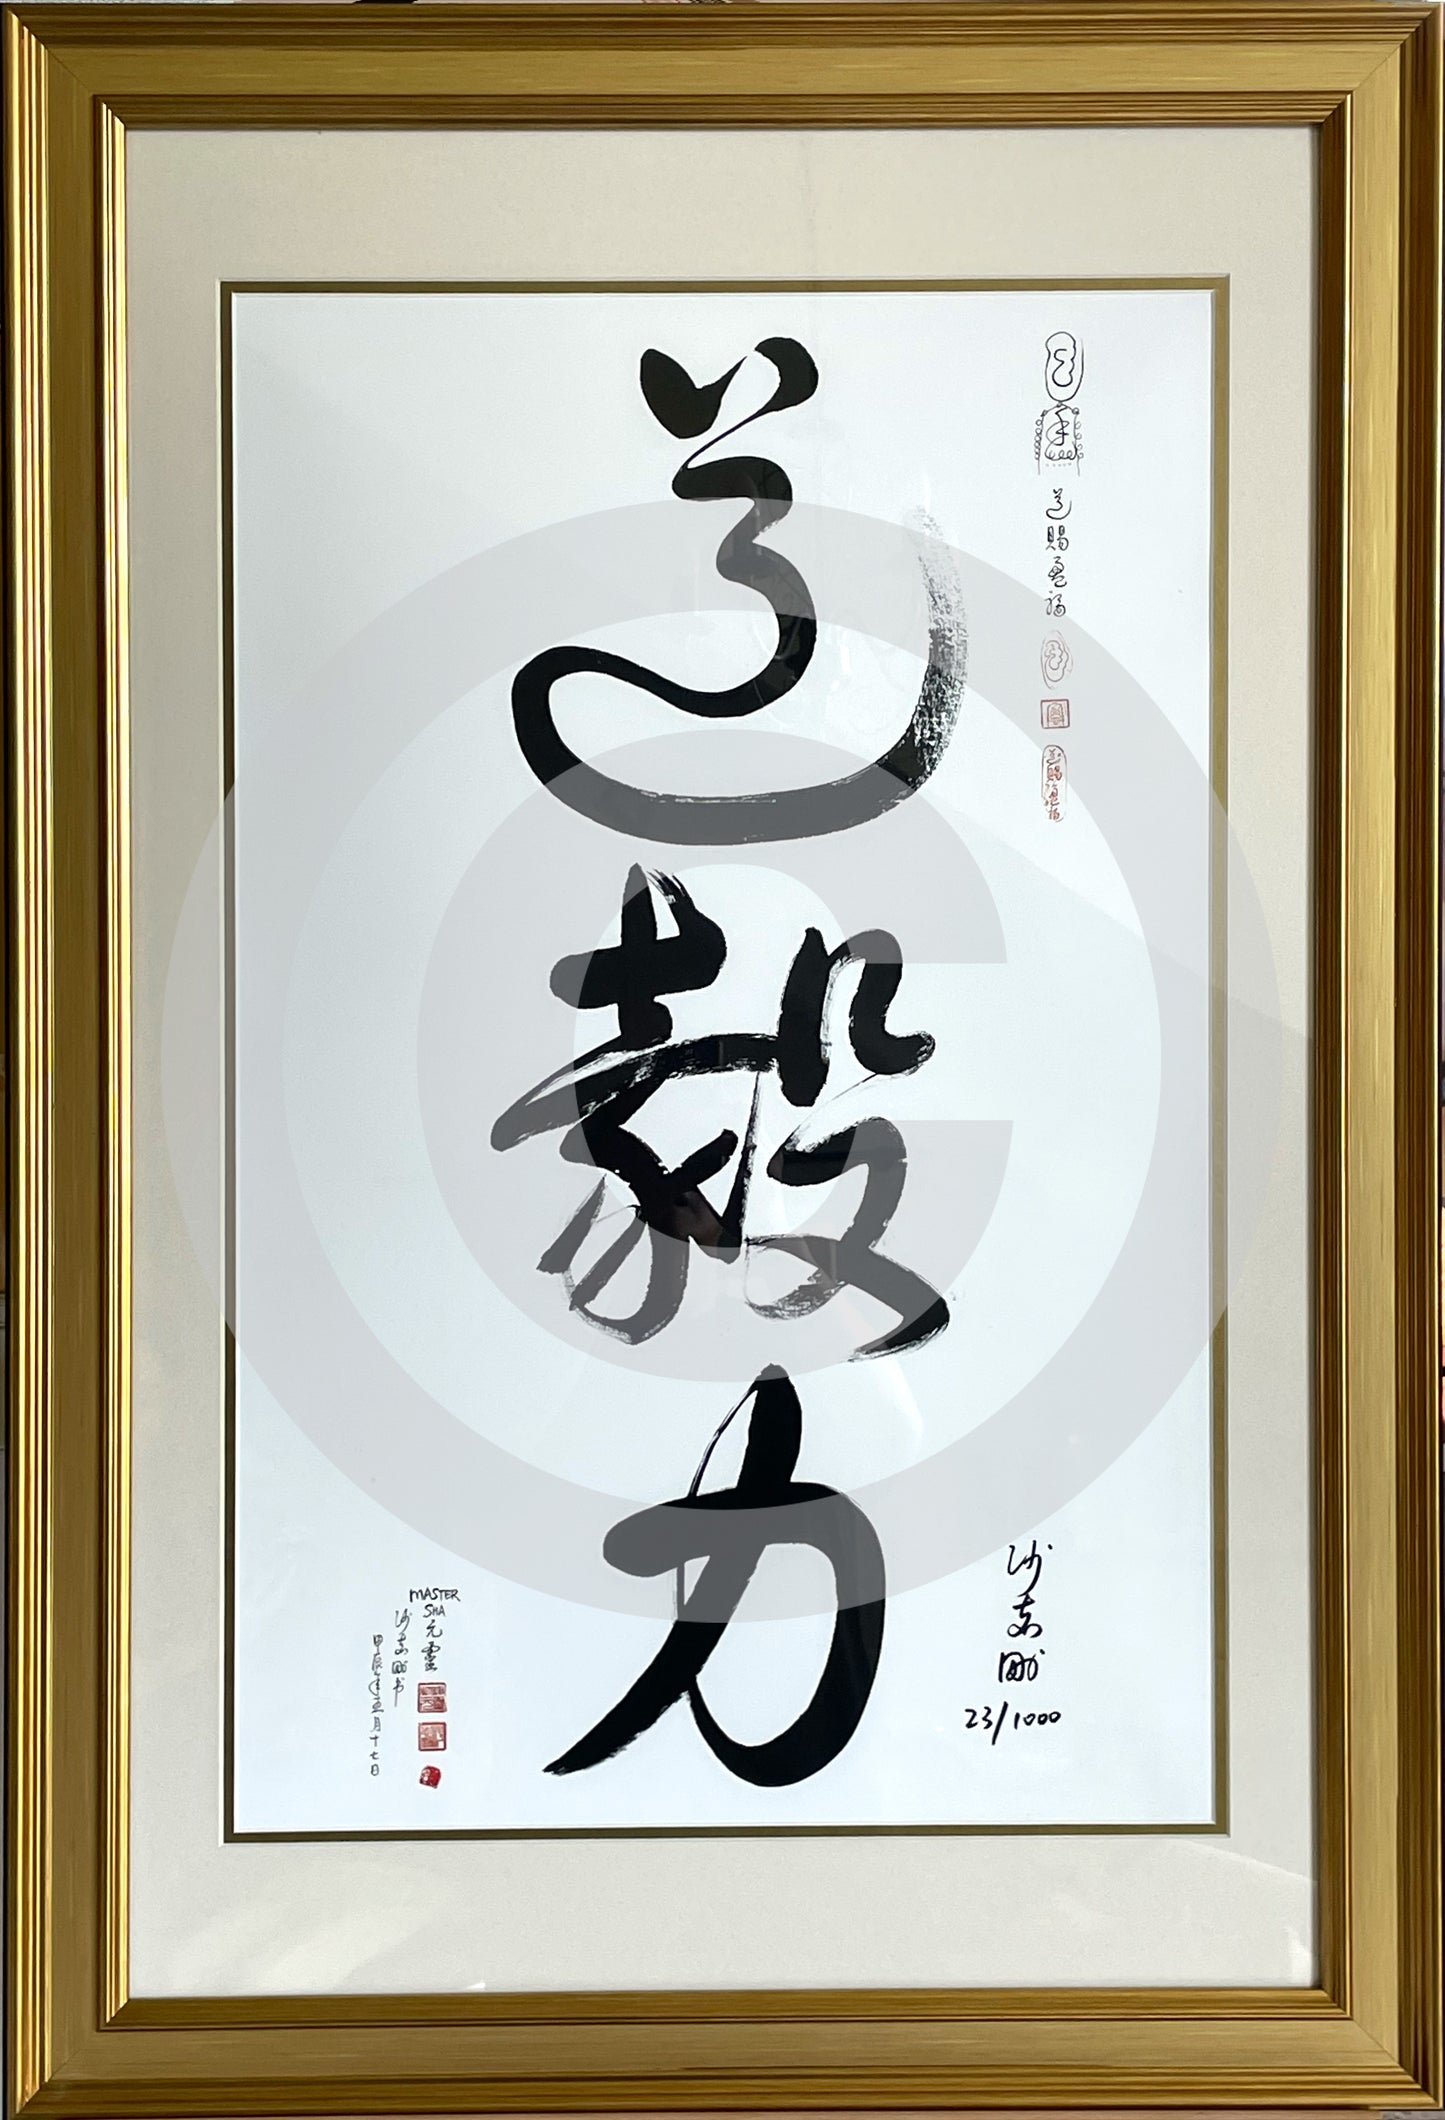 道
毅
力
道賜盈福
沙志剛
23/1000
MASTER
SHA
元靈
沙志剛书
甲辰年五月十七日
©